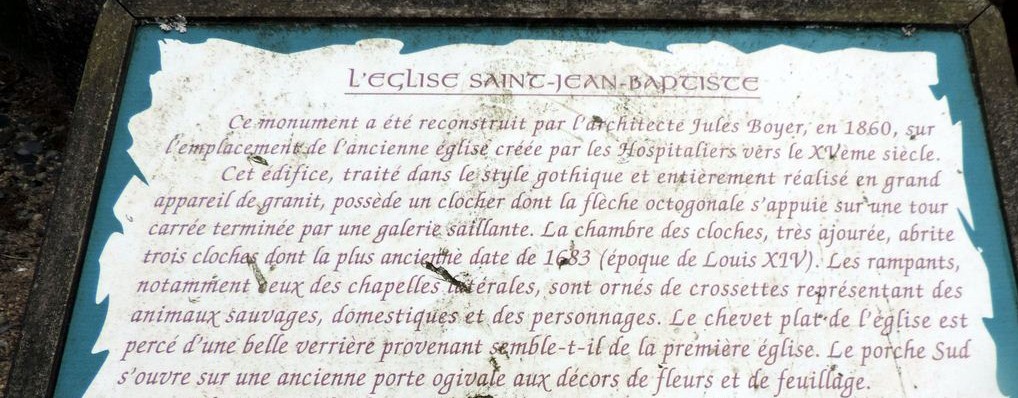 L'EGLISE SAINT-JEAN-BAPTISTE
Ce monument a été reconstruit par l'architecte Jules Boyer, en 1860, sur
l'emplacement de l'ancienne église créée par les Hospitaliers vers le XVème siècle.
Cet édifice, traité dans le style gothique et entièrement réalisé en grand
appareil de granit, possède un clocher dont la flèche octogonale s'appuie sur une tour
carrée terminée par une galerie saillante. La chambre des cloches, très ajourée, abrite
trois cloches dont la plus ancienne date de 1683 (époque de Louis XIV). Les rampants,
notamment ceux des chapelles latérales, sont ornés de crossettes représentant des
animaux sauvages, domestiques et des personnages. Le chevet plat de l'église est
percé d'une belle verrière provenant semble-t-il de la première église. Le porche Sud
s'ouvre sur une ancienne porte ogivale aux décors de fleurs et de feuillage.